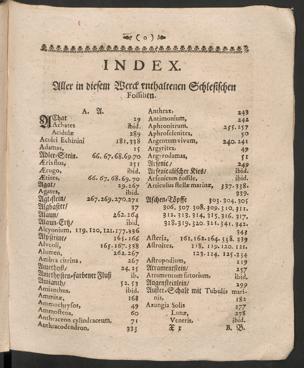 ( 0 )
INDEX.
Aller in diesem Werck enthaltenen Schlesischen
Fossilien.
A. A.
AChat 29
Achates ibid.
Acidulæ 289
Aculei Echinini 181. 338
Adamas, 15
Adler-Stein. 66. 67. 68. 69. 70
Ærisflos, 251
Ærugo, ibid.
Ætites, 66. 67. 68. 69. 70
Agat, 29. 267
Agates, ibid.
Agtstein, 267. 269. 270. 271
Alabaster, 37
Alaun, 262. 264
Alaun-Ertz, ibid.
Alcyonium, 119. 120. 121. 277. 336
Alpstrine, 165. 166
Alveoli, 165. 167. 358
Alumen, 262. 267
Ambra citrina, 267
Amethyst, 24. 25
Amethysten-farbener Fluß ib.
Amianth, 52. 53
Amianthus, ibid.
Ammites, 168
Ammochrysos, 49
Ammosteos, 60
Anthraceon cylindraceum, 71
Anthracodendron, 325
Anthrax. 243
Antimonium, 242
Aphronitrum. 255. 257
Aphroselenites, 50
Argentum vivum, 240. 241
Argyrites, 49
Argyrodamas, 51
Arsenic, 249
Arsenicalischer Kies, ibid.
Arsenicum fossile, ibid.
Articulus stellæ marinæ, 337. 338.
339.
Aschen-Töpffe 303. 304. 305
306. 307. 308. 309. 310. 311
312. 313. 314. 315. 316. 317.
318. 319. 320. 321. 341. 342.
343
Asteria, 161. 162. 164. 338. 339
Astroites, 118. 119. 120. 121.
123. 124. 125. 234
Astropodium, 119
Atramenstein, 257
Atramentum sutorium, ibid.
Augensteinstein, 299
Auster-Schalt mit Tubulis mari-
nis, 182
Axungia Solis 277
Lunæ, 278
Veneris, ibid.
X x B. B.